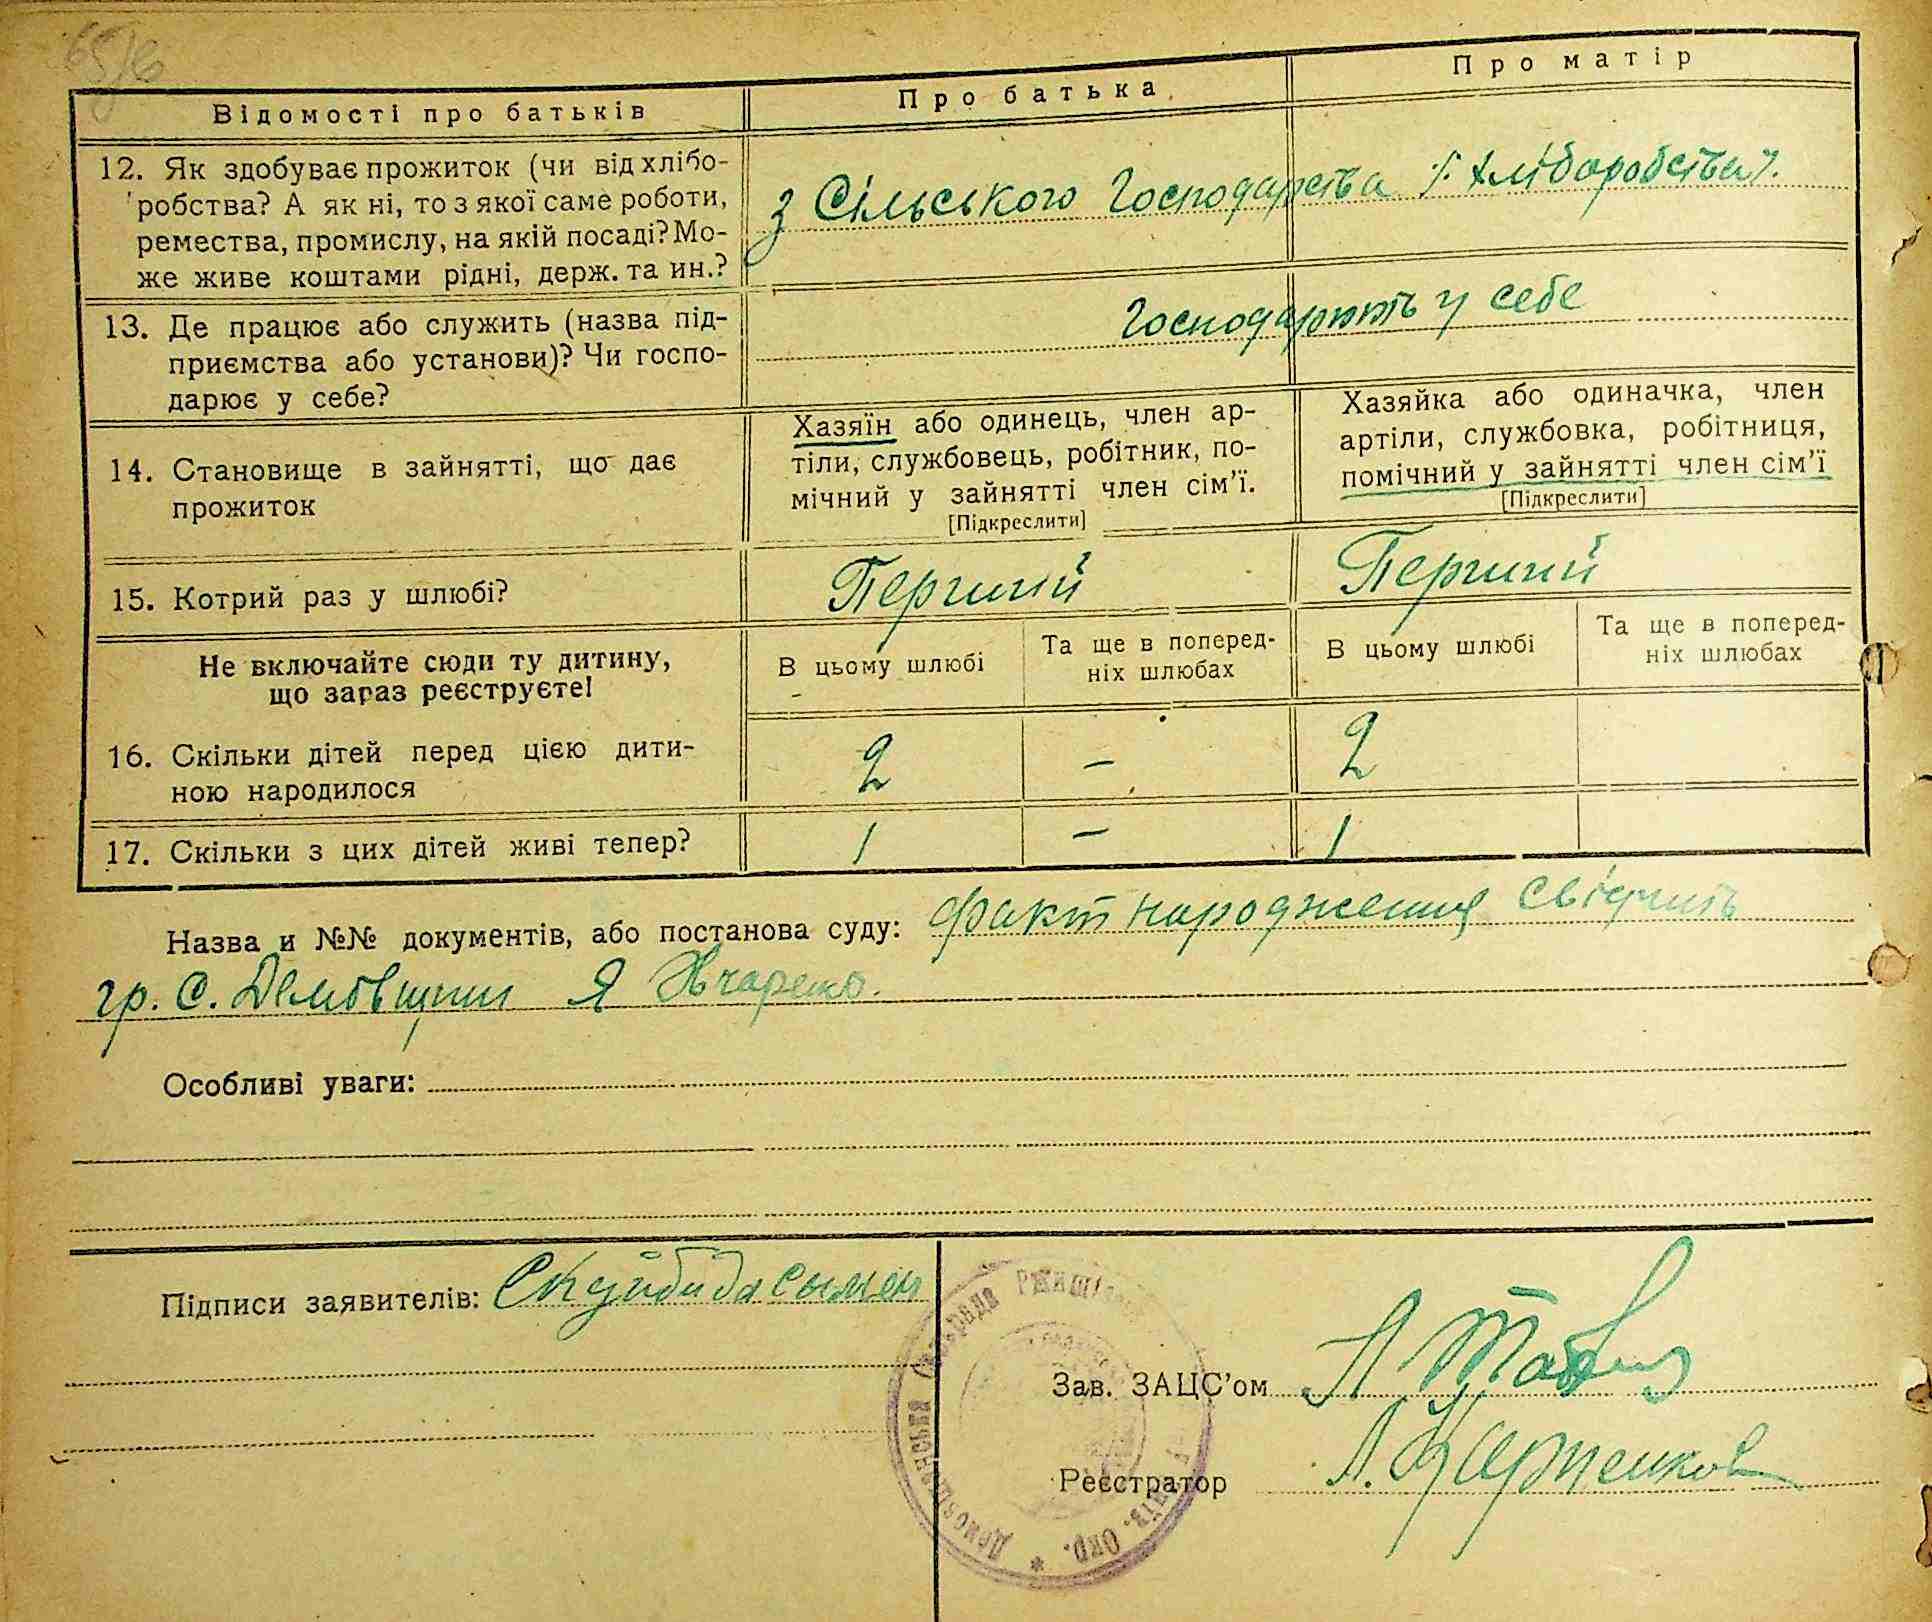 65/6
Відомості про батьків
Про батька
Про матір
12. Як здобуває прожиток (чи від хлібо-
робства? А як ні, то з якої саме роботи,
ремества, промислу, на якій посаді? Мо-
же живе коштами рідні, держ. та ин.?
з Сільського Господарства /: хліборобства/.
13. Де працює або служить (назва під-
приємства або установи)? Чи госпо-
дарює у себе?
Господарють у себе
14. Становище в зайнятті, що дає
прожиток
Хазяїн або одинець, член ар-
тіли, службовець, робітник, по-
мічний у зайнятті член сім'ї.
[Підкреслити]
Хазяйка або одиначка, член
артіли, службовка, робітниця,
помічний у зайнятті член сім'ї
[Підкреслити]
15. Котрий раз у шлюбі?
Перший
Перший
Не включайте сюди ту дитину,
що зараз реєструєте!
В цьому шлюбі
Та ще в поперед-
ніх шлюбах
В цьому шлюбі
Та ще в поперед-
ніх шлюбах
16. Скільки дітей перед цією дити-
ною народилося
2 – 2
17. Скільки з цих дітей живі тепер?
1 – 1
Назва и №№ документів, або постанова суду: факт народження свідчить
гр. с. Демовщини Я
Особливі уваги:
Підписи заявителів: Скуйбида Сымен
Зав. ЗАЦС'ом
Реєстратор
рада Ржищів
Окр. *